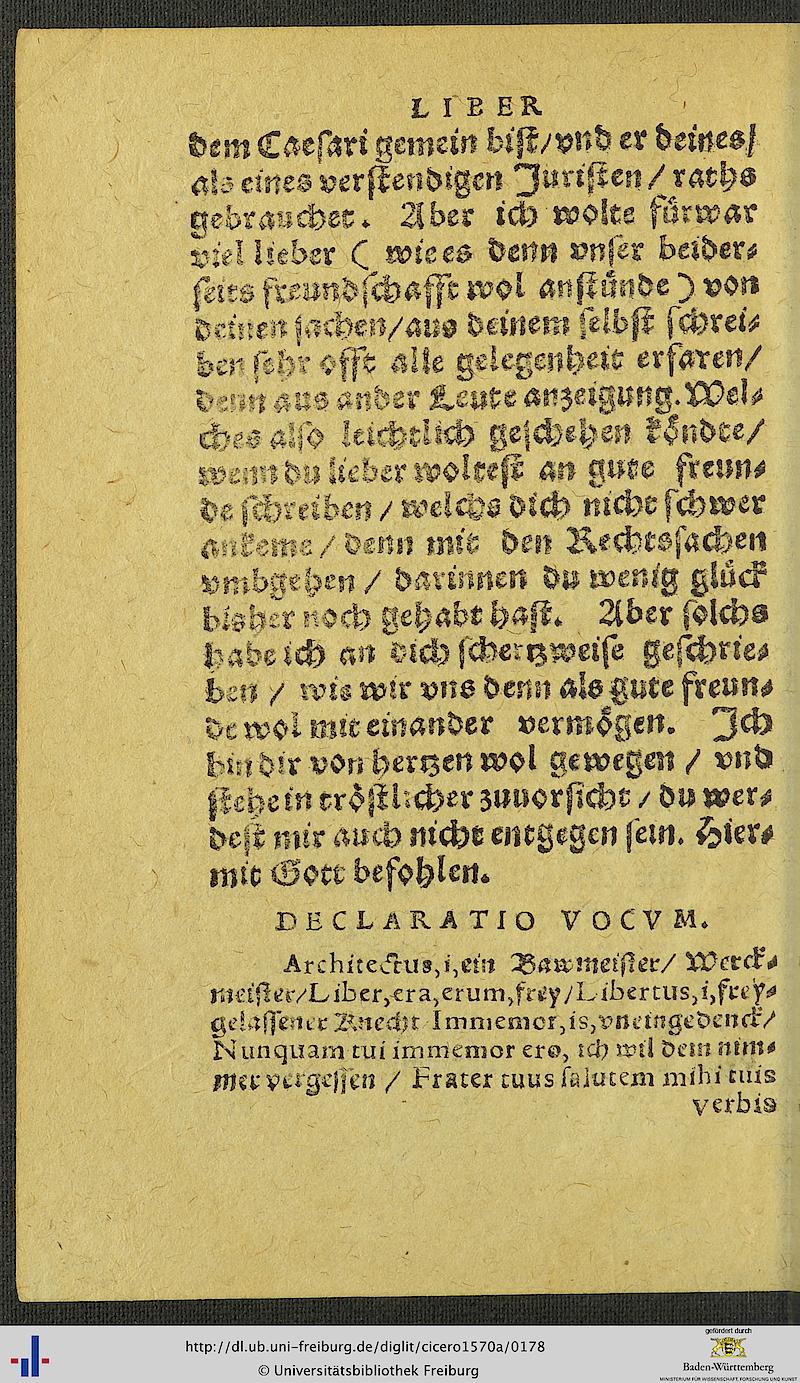 LIBER
dem Caesari gemein bist/vnd er deines/
als eines verstendigen Juristen/ raths
gebrauchet. Aber ich wolte fůrwar
viel lieber ( wie es denn vnser beider⸗
seits freundschafft wol anstůnde ) von
deinen sachen/aus deinem selbst schrei⸗
ben sehr offt alle gelegenheit erfaren/
denn aus ander Leute anzeigung. Wel⸗
ches also leichtlich geschehen kőndte/
wenn du lieber woltest an gute freun⸗
de schreiben / welchs dich nicht schwer
ankeme / denn mit den Rechtssachen
vmbgehen / darinnen du wenig glůck
bisher noch gehabt hast. Aber solchs
habe ich an dich schertzweise geschrie⸗
ben / wie wir vns denn als gute freun⸗
de wol mit einander vermőgen. Ich
bin dir von hertzen wol gewegen / vnd
stehe in trőstlicher zuuorsicht / du wer⸗
dest mir auch nicht entgegen sein. Hier⸗
mit Gott befohlen.
DECLARATIO VOCVM.
Architectus,i,ein Bawmeister/ Werck⸗
meister/Liber,era,erum,frey/Libertus,i,frey⸗
gelassener Knecht Immemor,is,vneingedenck/
Nunquam tui immemor ero, ich wil dein nim⸗
mer vergessen / Frater tuus salutem mihi tuis
verbis
http://dl.ub.uni-freiburg.de/diglit/cicero1570a/0178
© Universitätsbibliothek Freiburg
gefördert durch
Baden-Württemberg
MINISTERIUM FÜR WISSENSCHAFT, FORSCHUNG UND KUNST